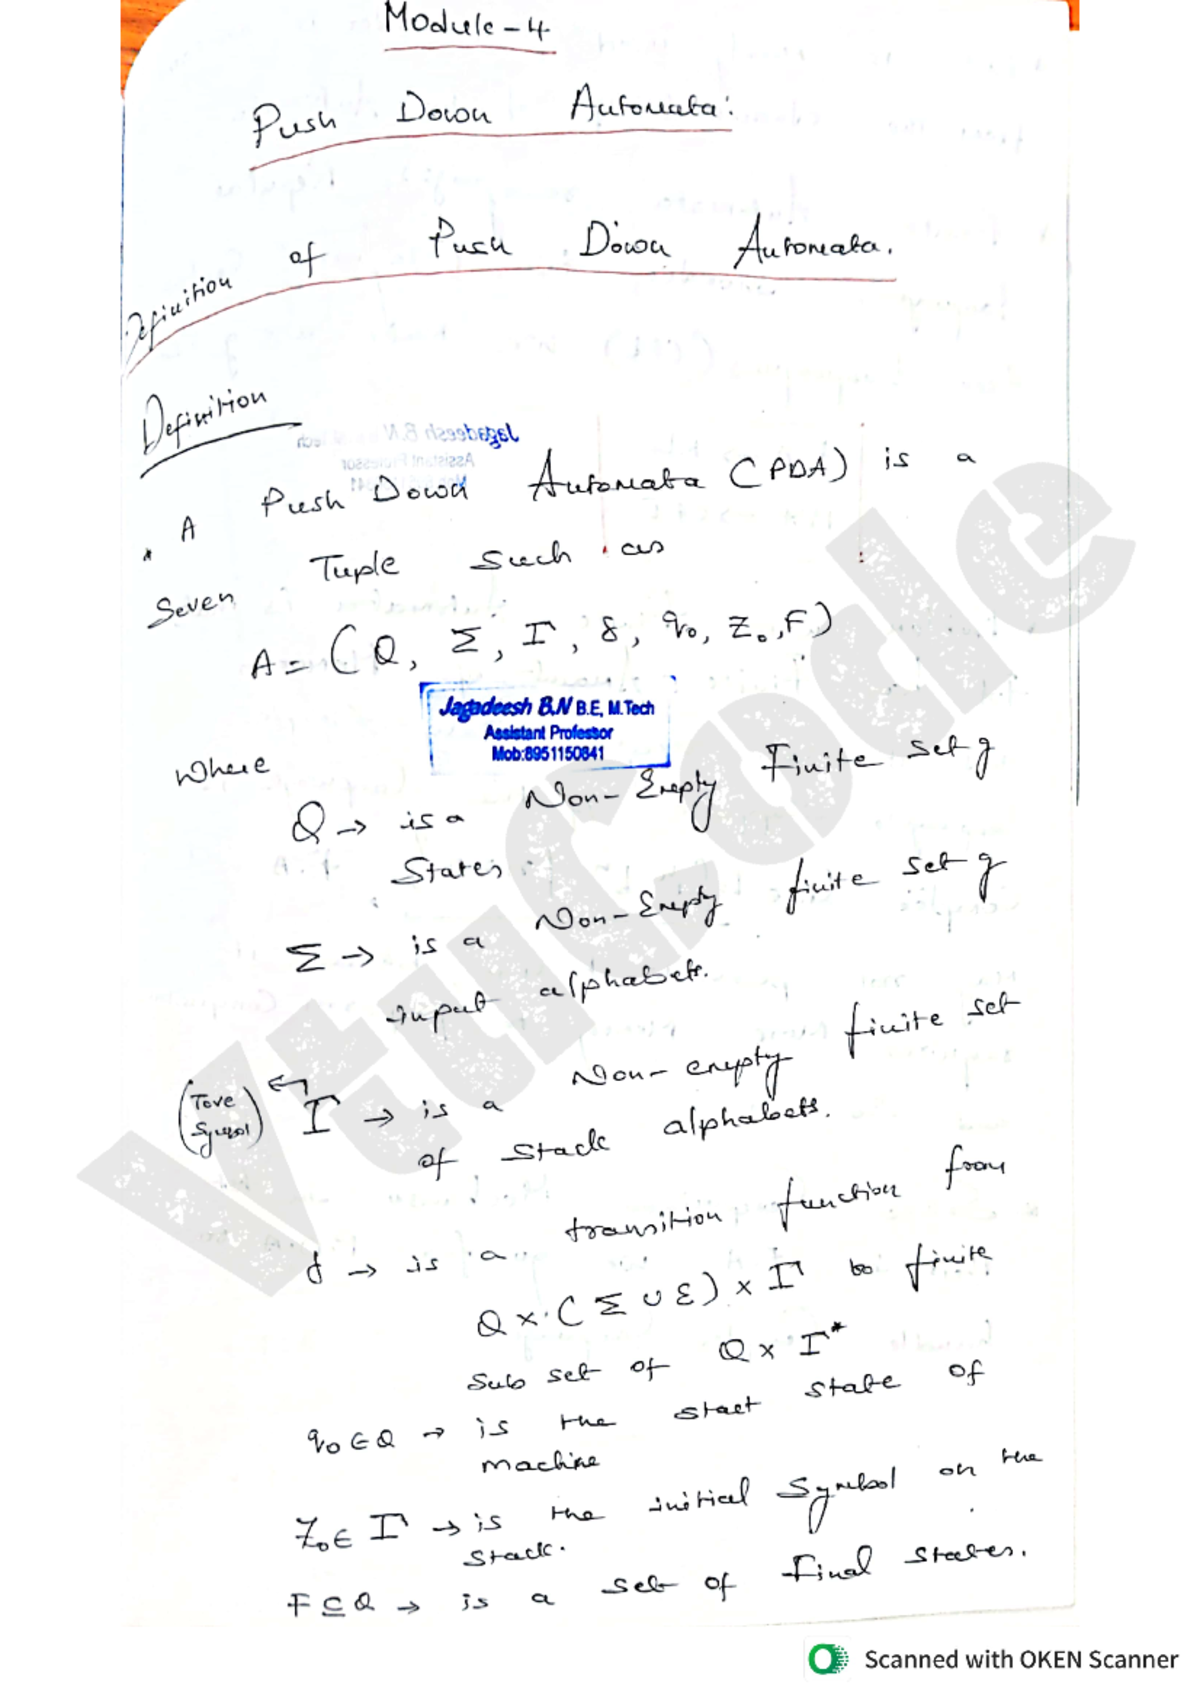 Module-4
Push Down Automata:
Definition of Push Down Automata.
Definition
Jagadeesh B.N
Assistant Professor
* A Push Down Automata (PDA) is a
Seven Tuple Such as
A = (Q, Σ, Γ, δ, q₀, Z₀, F)
Jagadeesh B.N B.E, M.Tech
Assistant Professor
Mob:8951150841
Where
Q → is a Non-Empty Finite set of
States.
Σ → is a Non-Empty finite set of
input alphabets.
(Tove Symbol) ← Γ → is a Non-empty finite set
of stack alphabets.
δ → is a transition function from
Q × (Σ ∪ Ɛ) × Γ to finite
Sub set of Q × Γ*
q₀ ∈ Q → is the start state of
machine
Z₀ ∈ Γ → is the initial Symbol on the
stack.
F ⊆ Q → is a set of Final states.
VtuCode
Scanned with OKEN Scanner